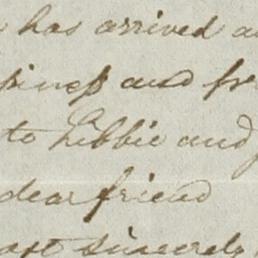 has arrived a
siness and fr
to Libbie and
dear friend
ast sincerely